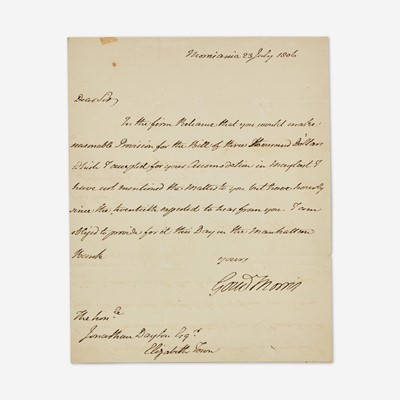 Morrisania 23 July 1806
Dear Sir,
In the firm Reliance that you would make
reasonable Provision for the Bill of three thousand Dollars
which I accepted for your Accomodation in May last I
have not mentioned the Matter to you but have hourly
since the twentieth expected to hear from you. I am
oblig'd to provide for it this Day in the Manhattan
Bank
yours
Gouv Morris
The honble
Jonathan Dayton Esqr
Elizabeth Town